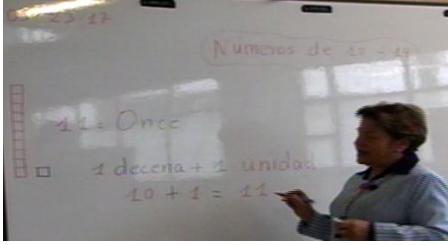 05-23-17
Números de 10 - 19
11 = Once
1 decena + 1 unidad
10 + 1 = 11